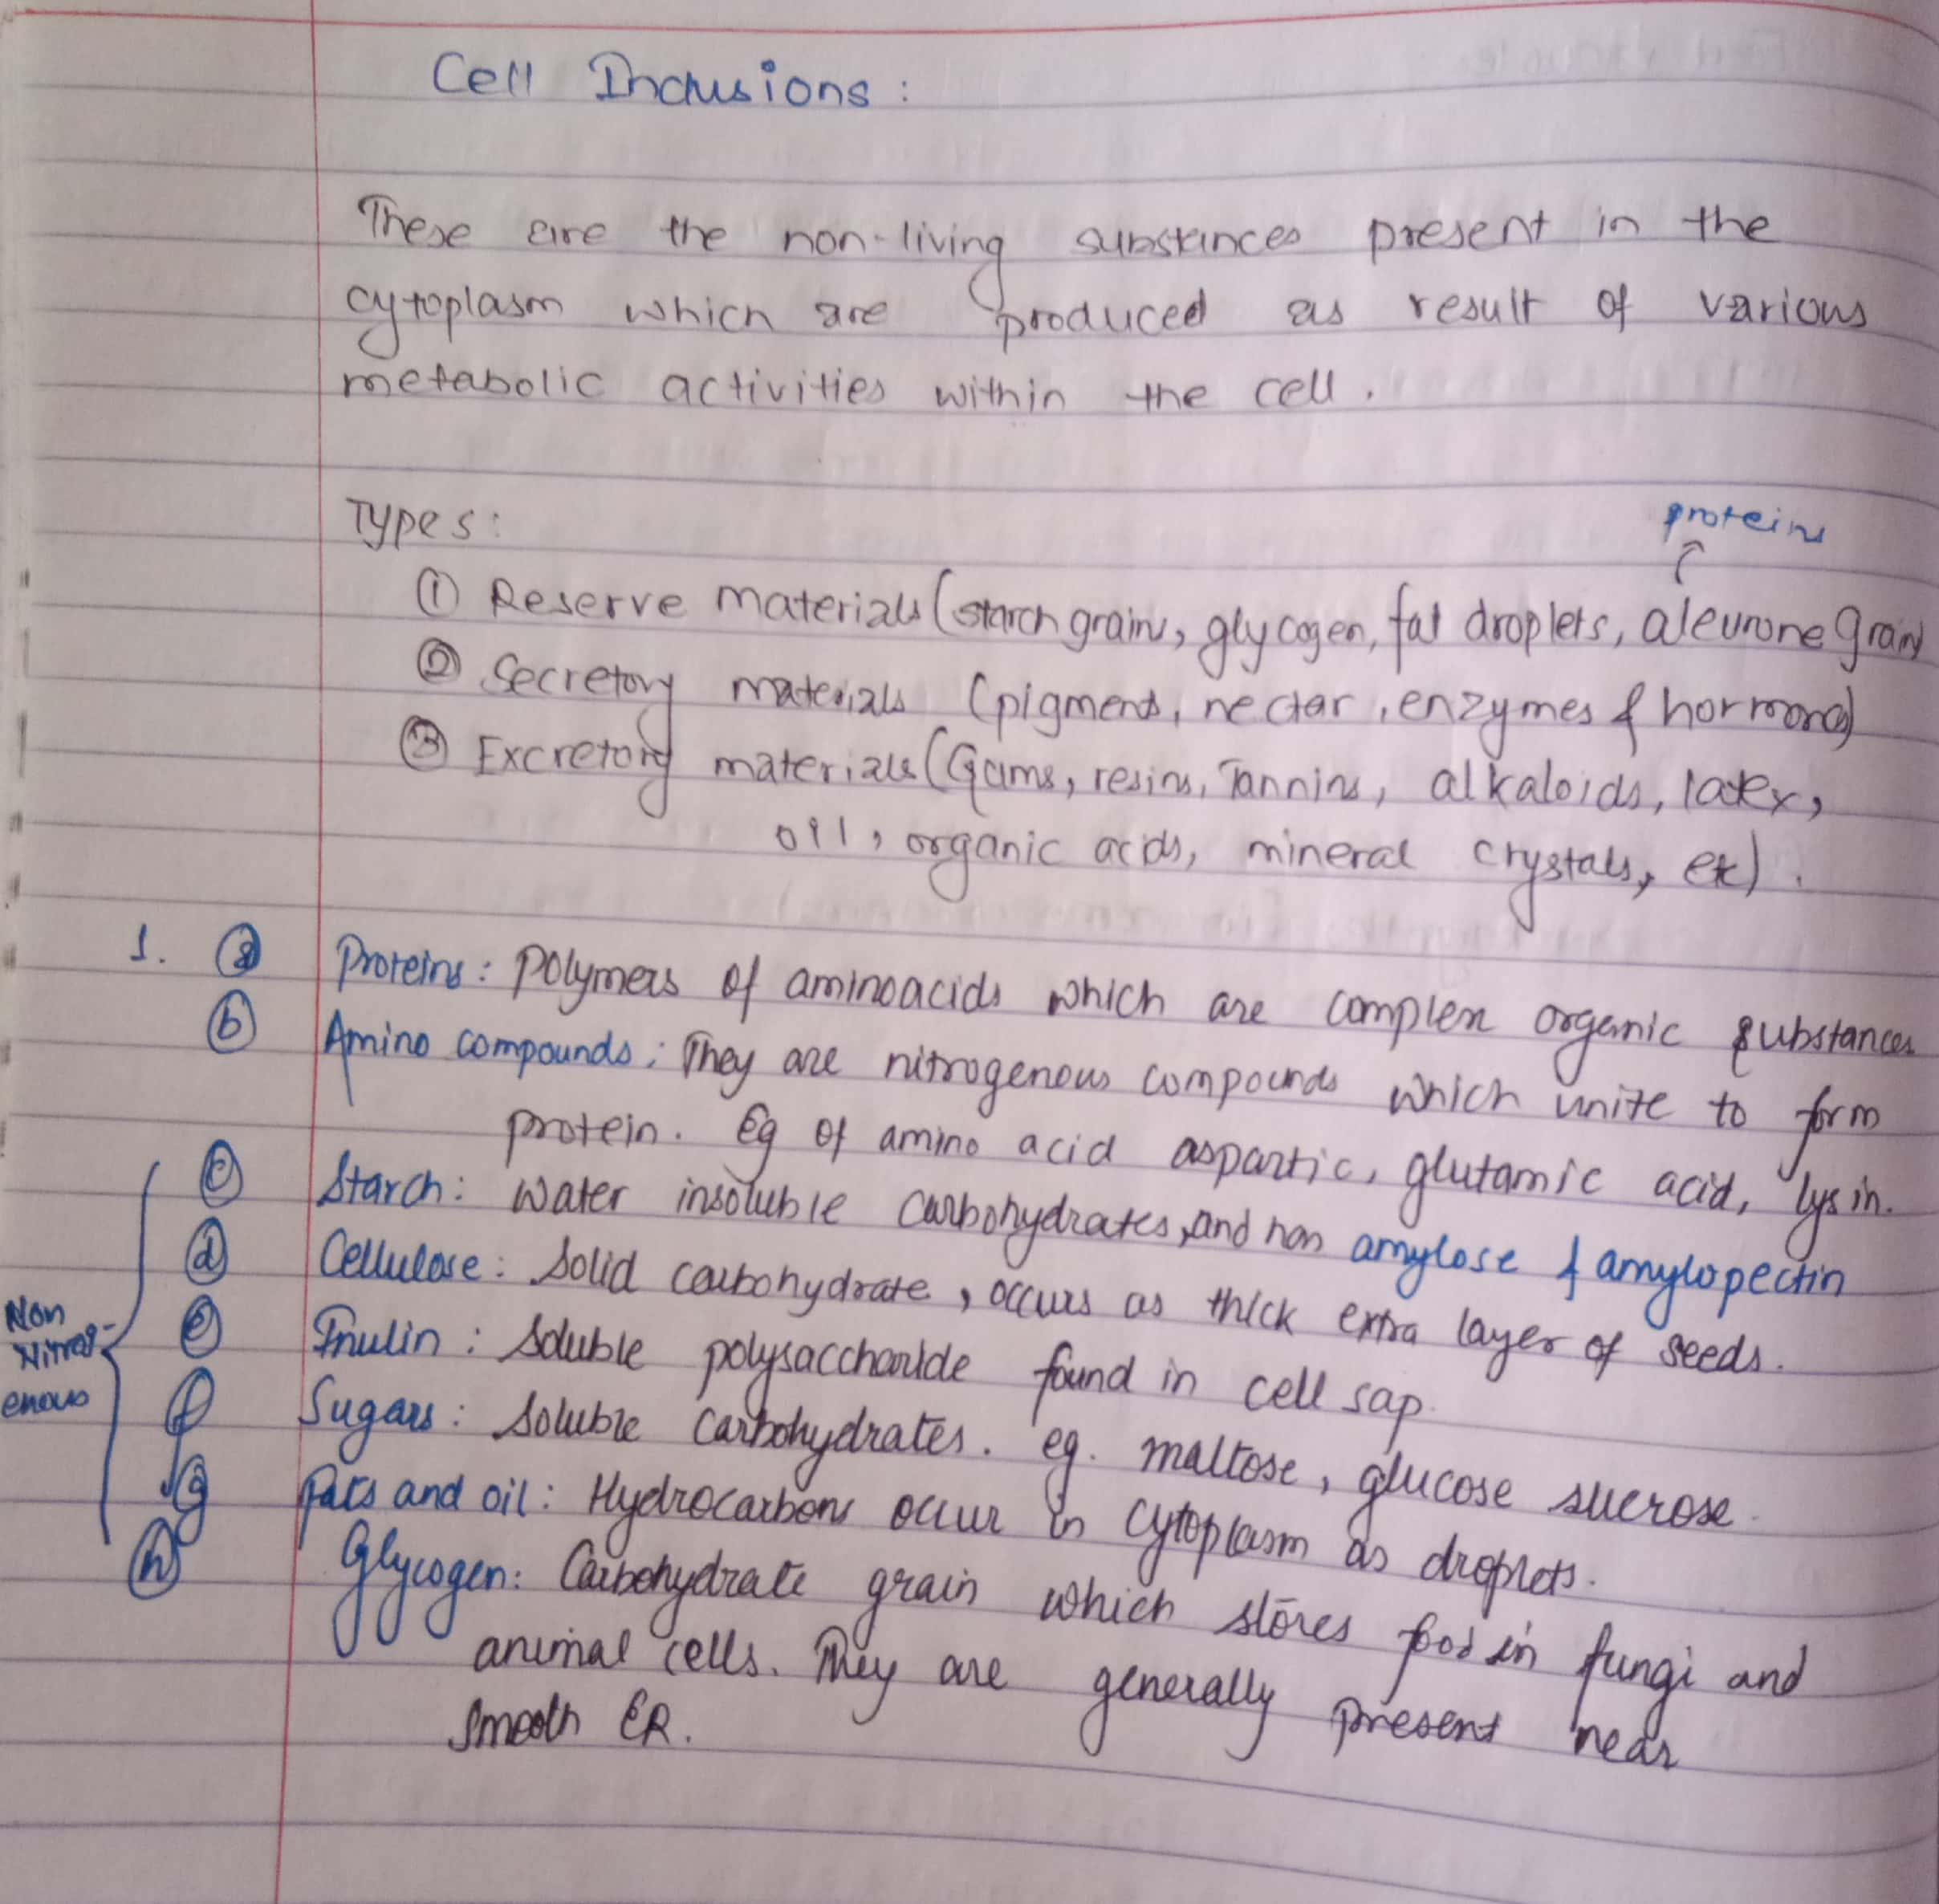 Cell Inclusions :
These are the non-living substances present in the
cytoplasm which are produced as result of various
metabolic activities within the cell.
Types:
proteins
① Reserve materials (starch grains, glycogen, fat droplets, aleurone grain
② Secretory materials (pigments, nectar, enzymes & hormones)
③ Excretory materials (Gums, resins, Tannins, alkaloids, latex,
oil, organic acids, mineral crystals, etc).
1. ⓐ Proteins: Polymers of aminoacids which are complex organic substances
ⓑ Amino compounds: They are nitrogenous compounds which unite to form
protein. Eg of amino acid aspartic, glutamic acid, lysin.
ⓒ Starch: Water insoluble carbohydrates, and non amylose & amylopectin
ⓓ Cellulose: Solid carbohydrate, occurs as thick extra layer of seeds.
Non
Nitrog-
enous
ⓔ Inulin: Soluble polysaccharide found in cell sap.
ⓕ Sugars: Soluble carbohydrates. eg. maltose, glucose sucrose.
ⓖ fats and oil: Hydrocarbons occur in cytoplasm as droplets.
ⓗ Glycogen: Carbohydrate grain which stores food in fungi and
animal cells. They are generally present near
smooth ER.